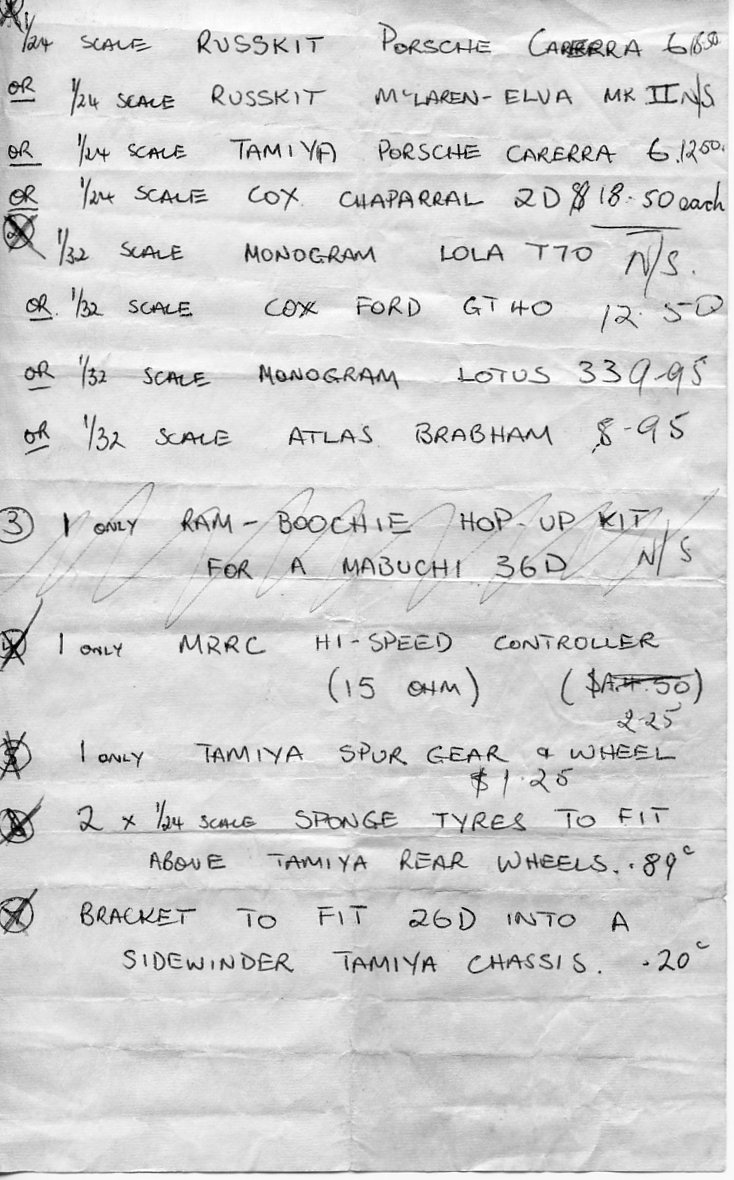 1/24 SCALE RUSSKIT PORSCHE CARRERA 6 18.50
OR 1/24 SCALE RUSSKIT McLAREN-ELVA MK II N/S
OR 1/24 SCALE TAMIYA PORSCHE CARERRA 6. 12.50.
OR 1/24 SCALE COX CHAPARRAL 2D $18.50 each
2 1/32 SCALE MONOGRAM LOLA T70 N/S.
OR. 1/32 SCALE COX FORD GT40 12.50
OR 1/32 SCALE MONOGRAM LOTUS 33 9.95
OR 1/32 SCALE ATLAS BRABHAM 8.95
3 1 ONLY RAM-BOOCHIE HOP-UP KIT
FOR A MABUCHI 36D N/S
4 1 ONLY MRRC HI-SPEED CONTROLLER
(15 OHM) ($A4.50)
2.25
5 1 ONLY TAMIYA SPUR GEAR & WHEEL
$1.25
6 2 x 1/24 SCALE SPONGE TYRES TO FIT
ABOVE TAMIYA REAR WHEELS. .89c
7 BRACKET TO FIT 26D INTO A
SIDEWINDER TAMIYA CHASSIS. .20c